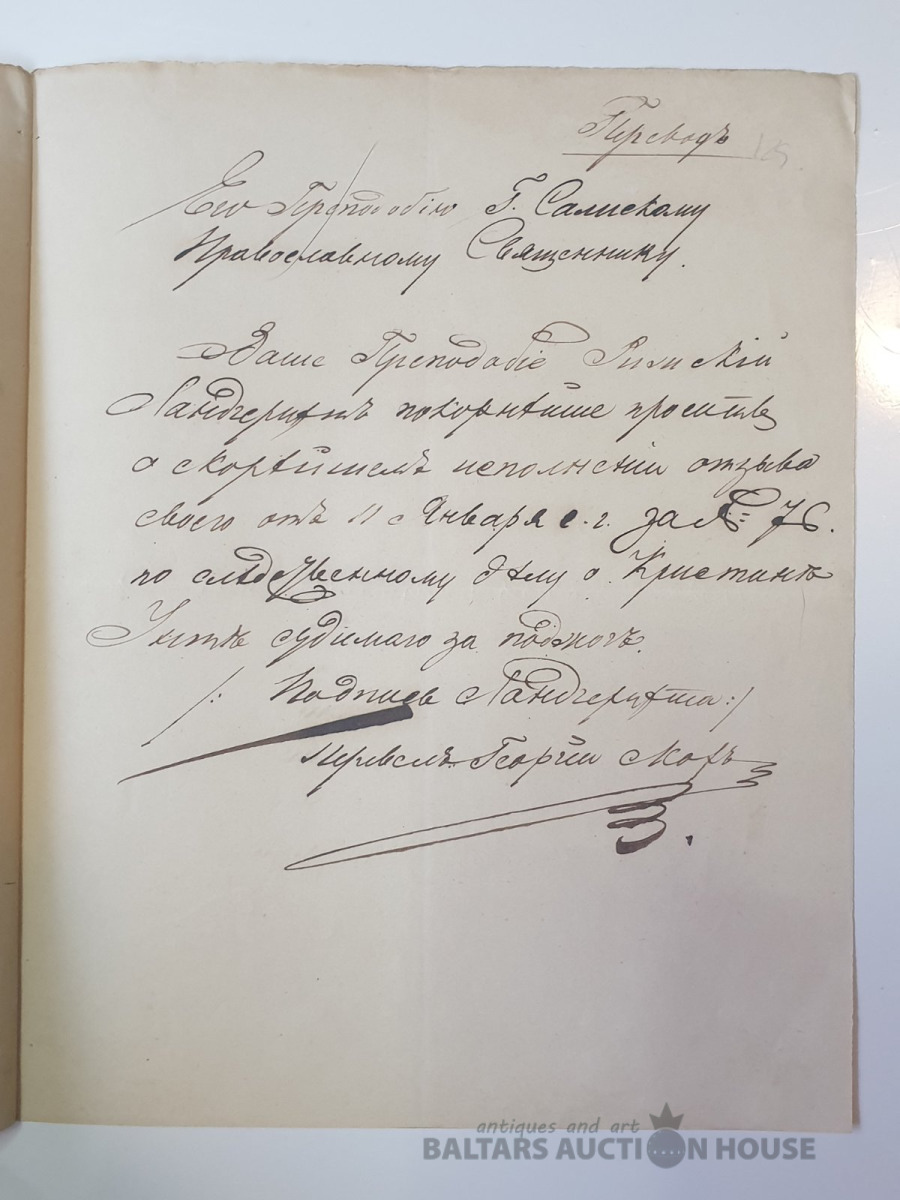 Переводъ
Его Преподобію Г. Салискому
Православному Священнику.
Ваше Преподобіе Рижскій
Ландгерихтъ покорнѣйше проситъ
о скорѣйшемъ исполненіи отзыва
своего отъ 11 Января с. г. за № 76.
по слѣдственному дѣлу о Кристинѣ
судимаго за поджогъ.
/: Подпись Ландгерихта :/
Перевелъ Георгій
antiques and art
BALTARS AUCTION HOUSE